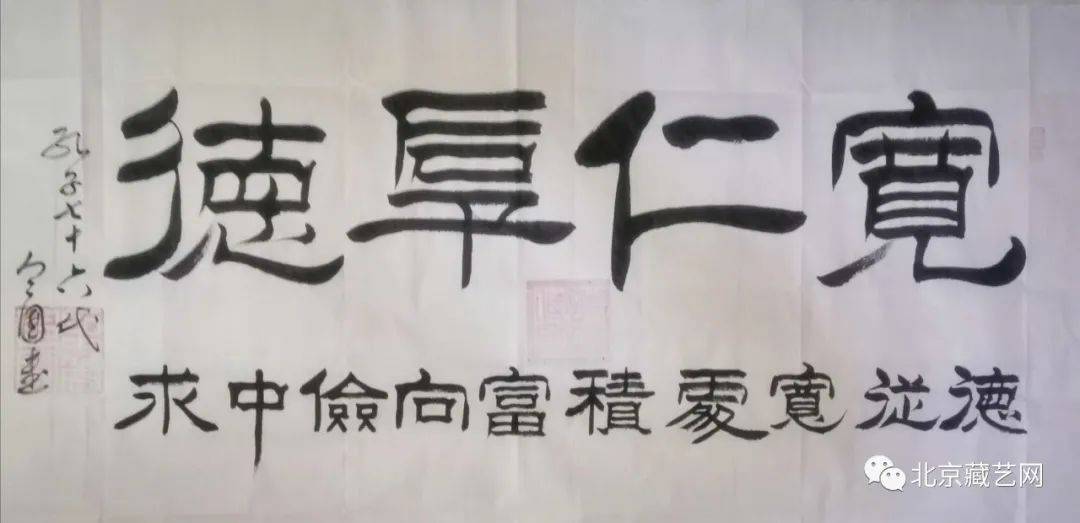 寬仁厚德
德從寬處積富向儉中求
孔子七十六代
令圖書
北京藏艺网